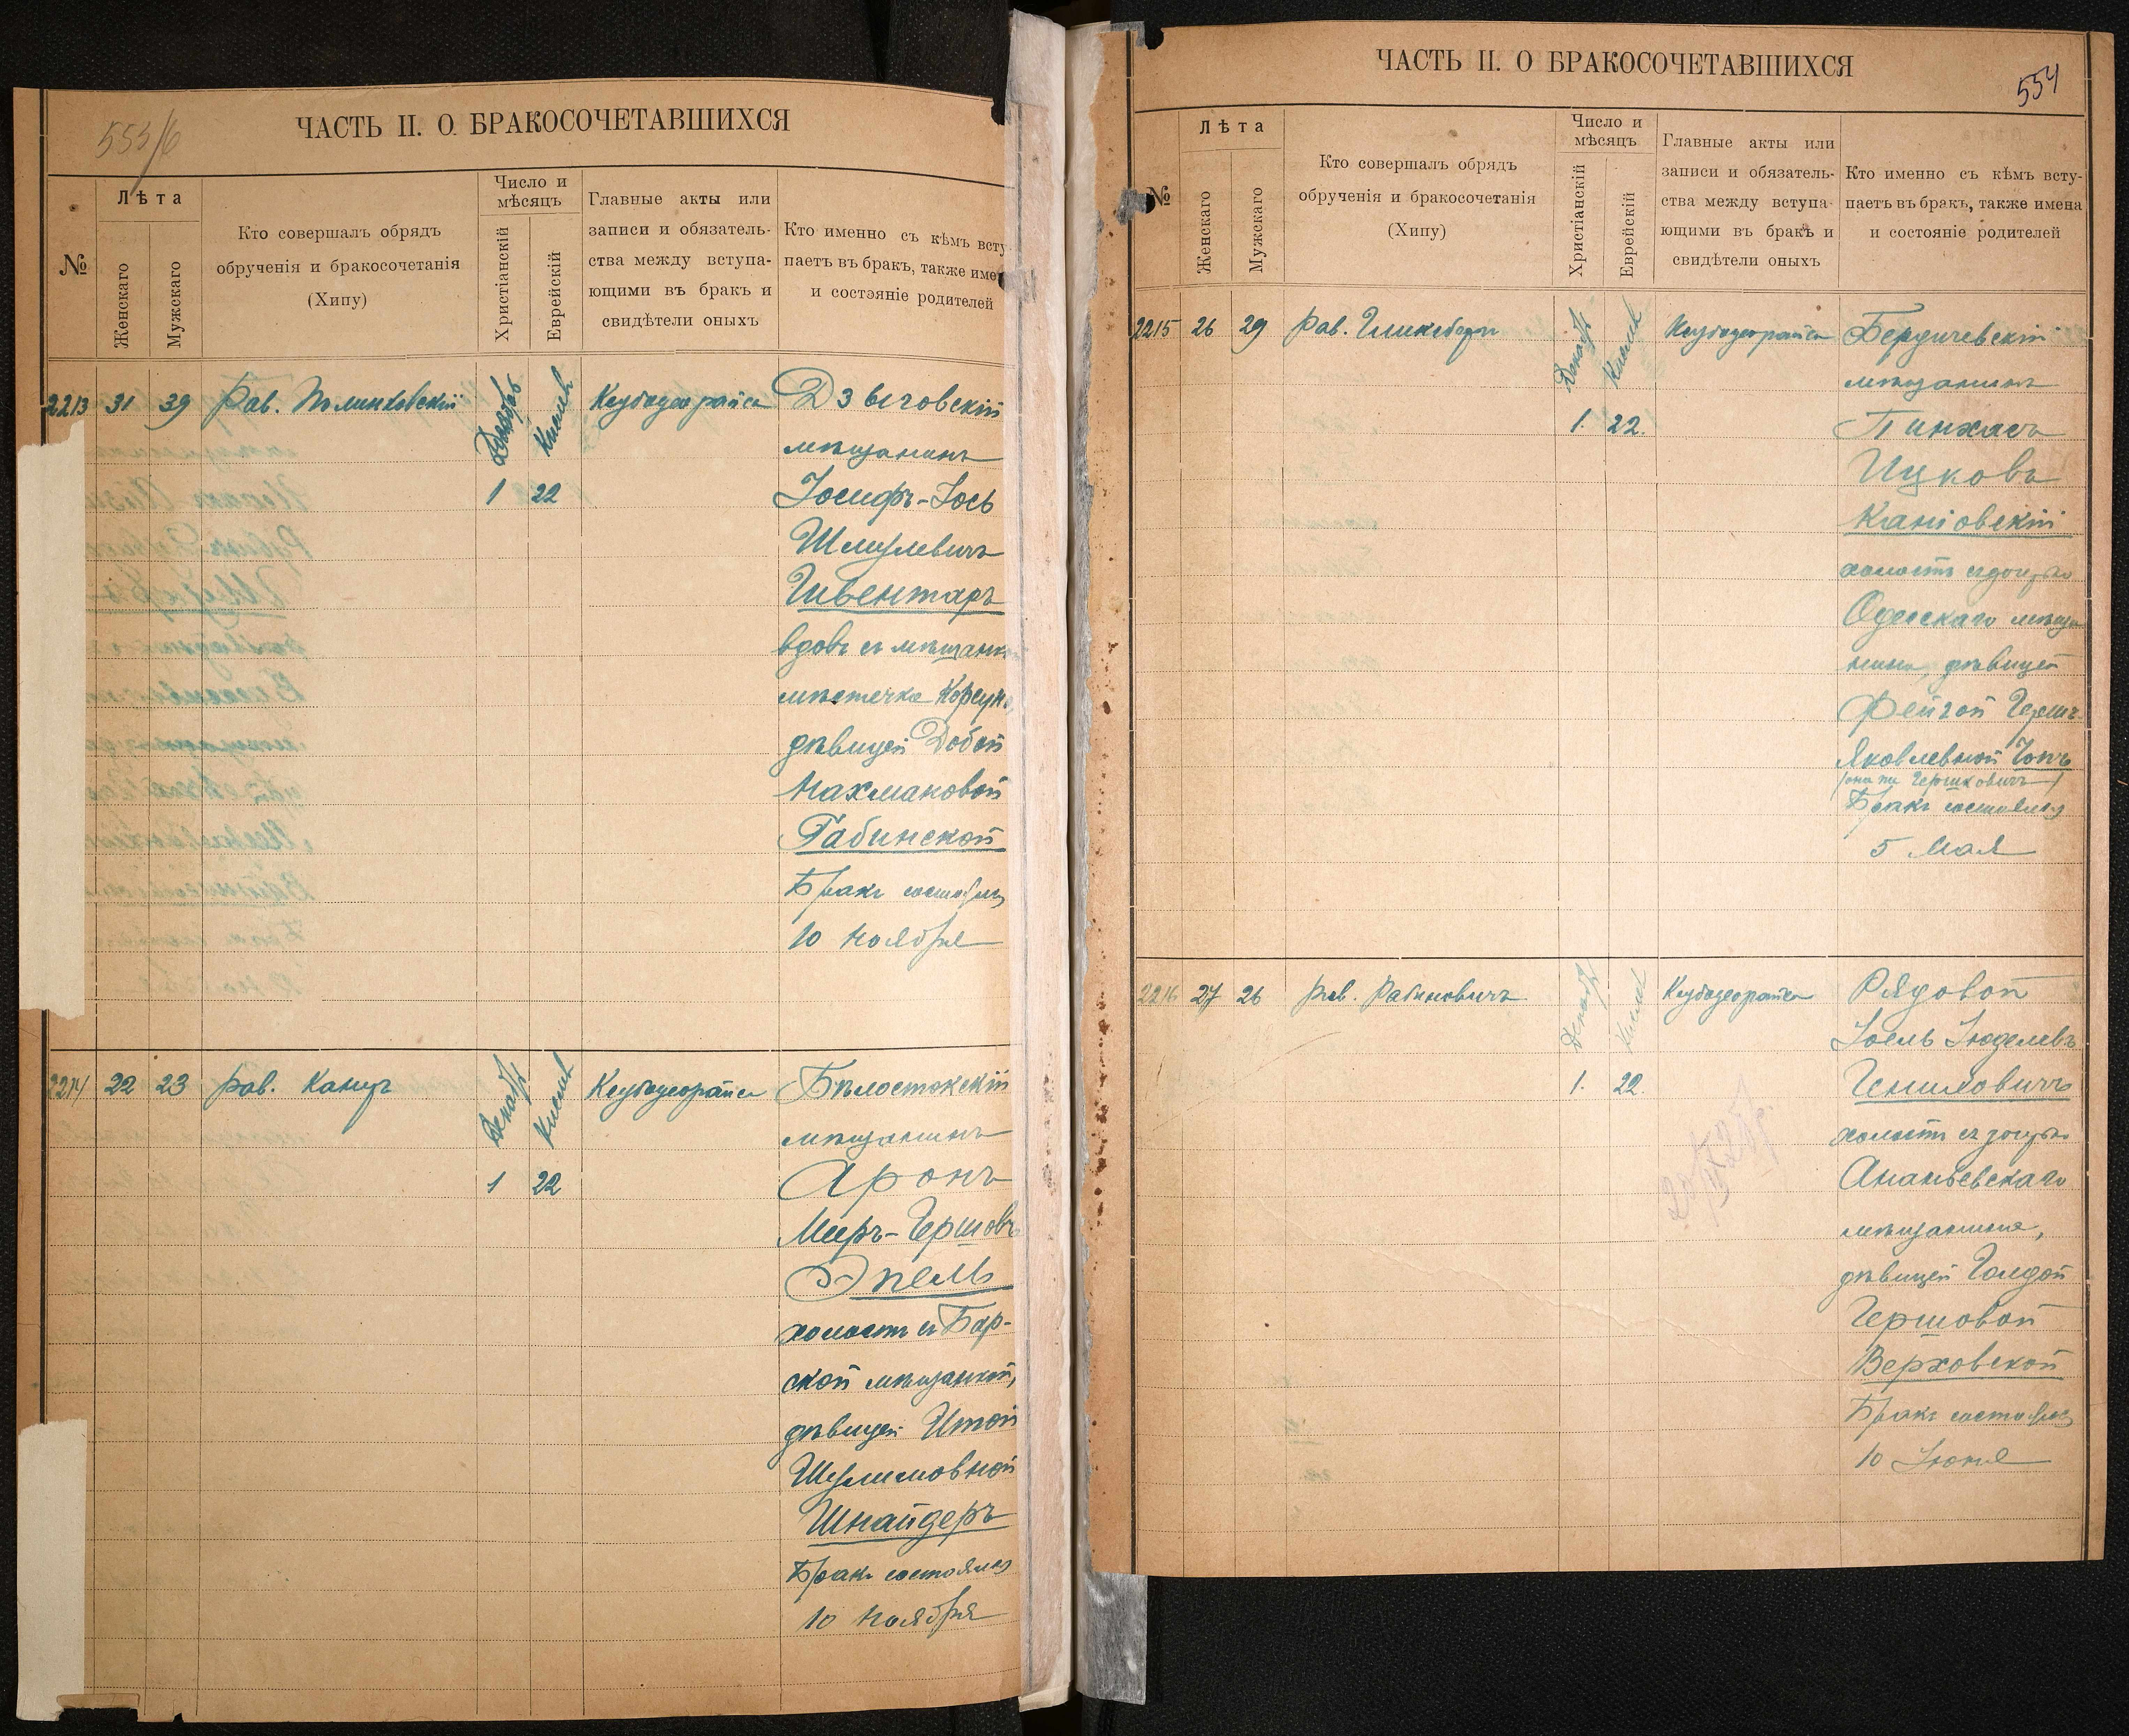 553/б
ЧАСТЬ II. О БРАКОСОЧЕТАВШИХСЯ
№
Лѣта
Женскаго
Мужскаго
Кто совершалъ обрядъ
обрученія и бракосочетанія
(Хипу)
Число и
мѣсяцъ
Христіанскій
Еврейскій
Главные акты или
записи и обязатель-
ства между вступа-
ющими въ бракъ и
свидѣтели оныхъ
Кто именно съ кѣмъ всту
паетъ въ бракъ, также имен
и состэяніе родителей
2213 31 39 Рав. Полинковскій Декабрь Кислевъ Кеубодеорайса Дзыговскій
мѣщанинъ
1 22 Іосифъ-Іось
Шмулевичъ
Швентаръ
вдовъ съ мѣщанк
мѣстечка Корсун
дѣвицей Добой
Нахмановой
Рабинской
Бракъ состоялся
10 Ноября
2214 22 23 Рав. Канцъ Декабрь Кислевъ Кеубодеорайса Бѣлостокскій
мѣщанинъ
1 22 Аронъ
Меръ-Гершовъ
Эпель
холостъ съ Бар-
ской мѣщанкой,
дѣвицей Итой
Шулимовной
Шнайдеръ
Бракъ состоялся
10 Ноября
ЧАСТЬ II. О БРАКОСОЧЕТАВШИХСЯ
554
№
Лѣта
Женскаго
Мужскаго
Кто совершалъ обрядъ
обрученія и бракосочетанія
(Хипу)
Число и
мѣсяцъ
Христіанскій
Еврейскій
Главные акты или
записи и обязатель-
ства между вступа-
ющими въ бракъ и
свидѣтели оныхъ
Кто именно съ кѣмъ всту-
паетъ въ бракъ, также имена
и состояніе родителей
2215 26 29 Рав. Гликсбергъ Декабрь Кислевъ Кеубодеорайса Бердичевскій
мѣщанинъ
1. 22. Пинхасъ
Ицковъ
Каніовскій
холостъ съ дочерью
Одесскаго мѣща
нина, дѣвицей
Фейгой Гершъ-
Яковлевной Гопъ
(она же Гершковичъ)
Бракъ состоялся
5 Мая
2216 27 26 Рав. Рабиновичъ Декабрь Кислевъ Кеубодеорайса Рядовой
Іоель Іюделевъ
1. 22. Гениховичъ
холостъ съ дочерью
Ананьевскаго
мѣщанина,
дѣвицей Голдой
Гершовой
Верховской
Бракъ состоялся
10 Іюня